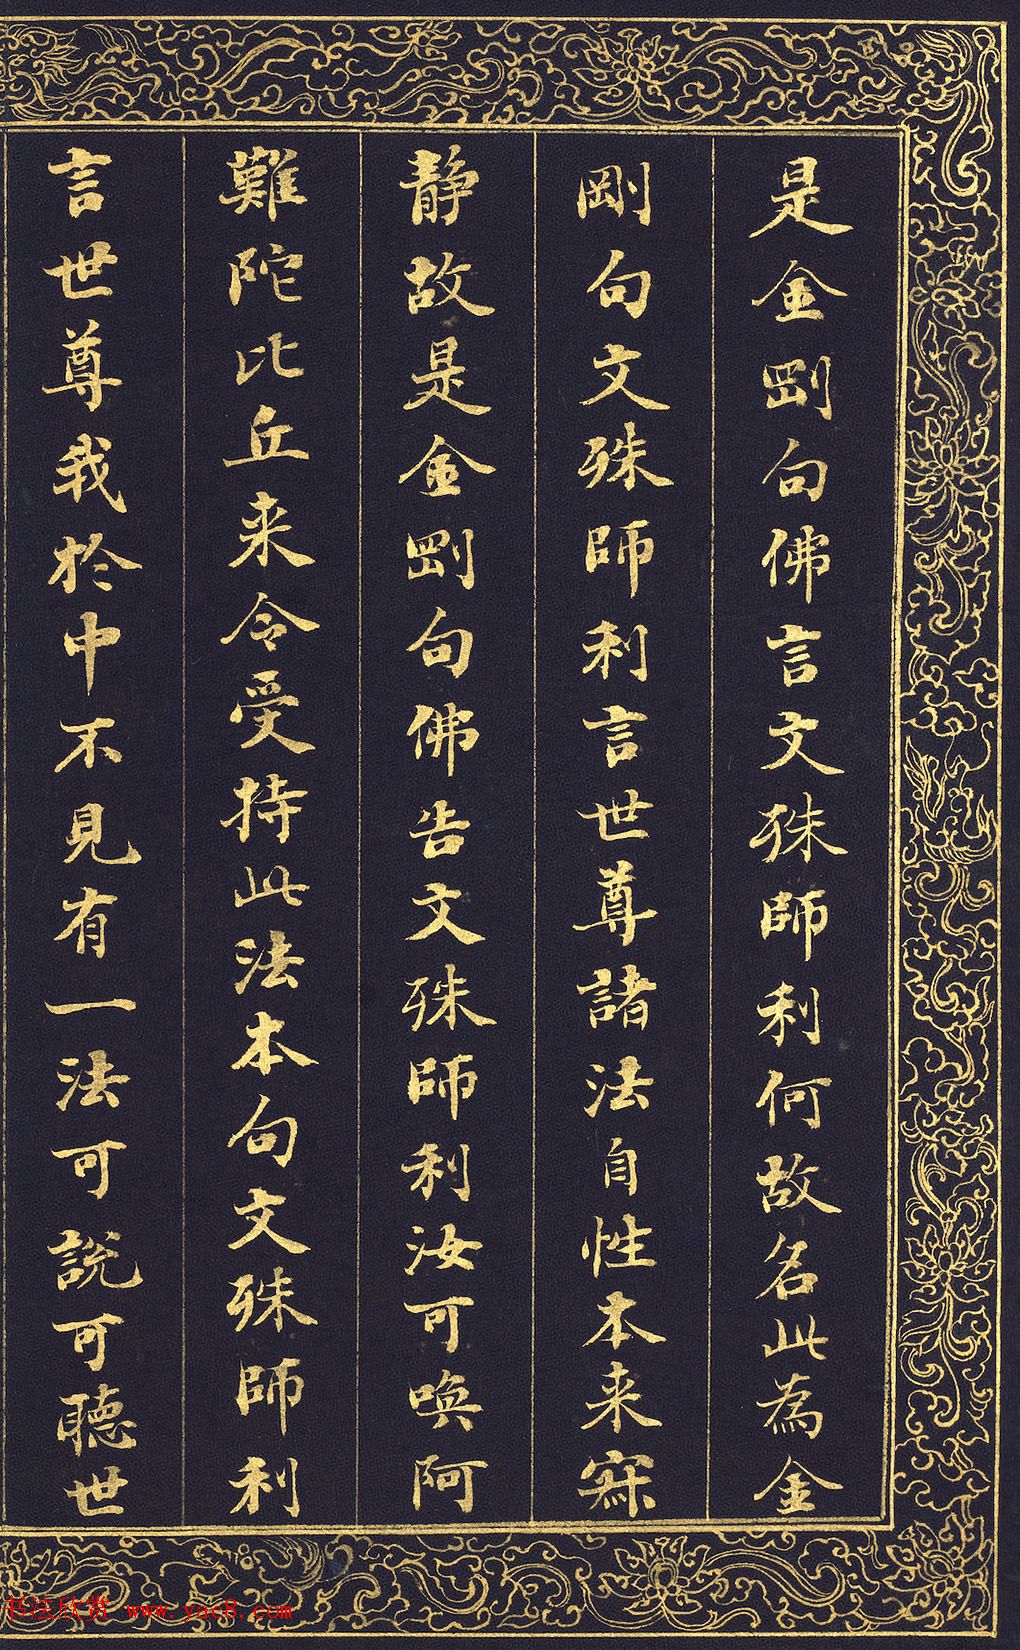 是金剛句佛言文殊師利何故名此為金
剛句文殊師利言世尊諸法自性本来寂
靜故是金剛句佛告文殊師利汝可喚阿
難陀比丘来令受持此法本句文殊師利
言世尊我於中不見有一法可說可聽世
书法欣赏 www.yac8.com